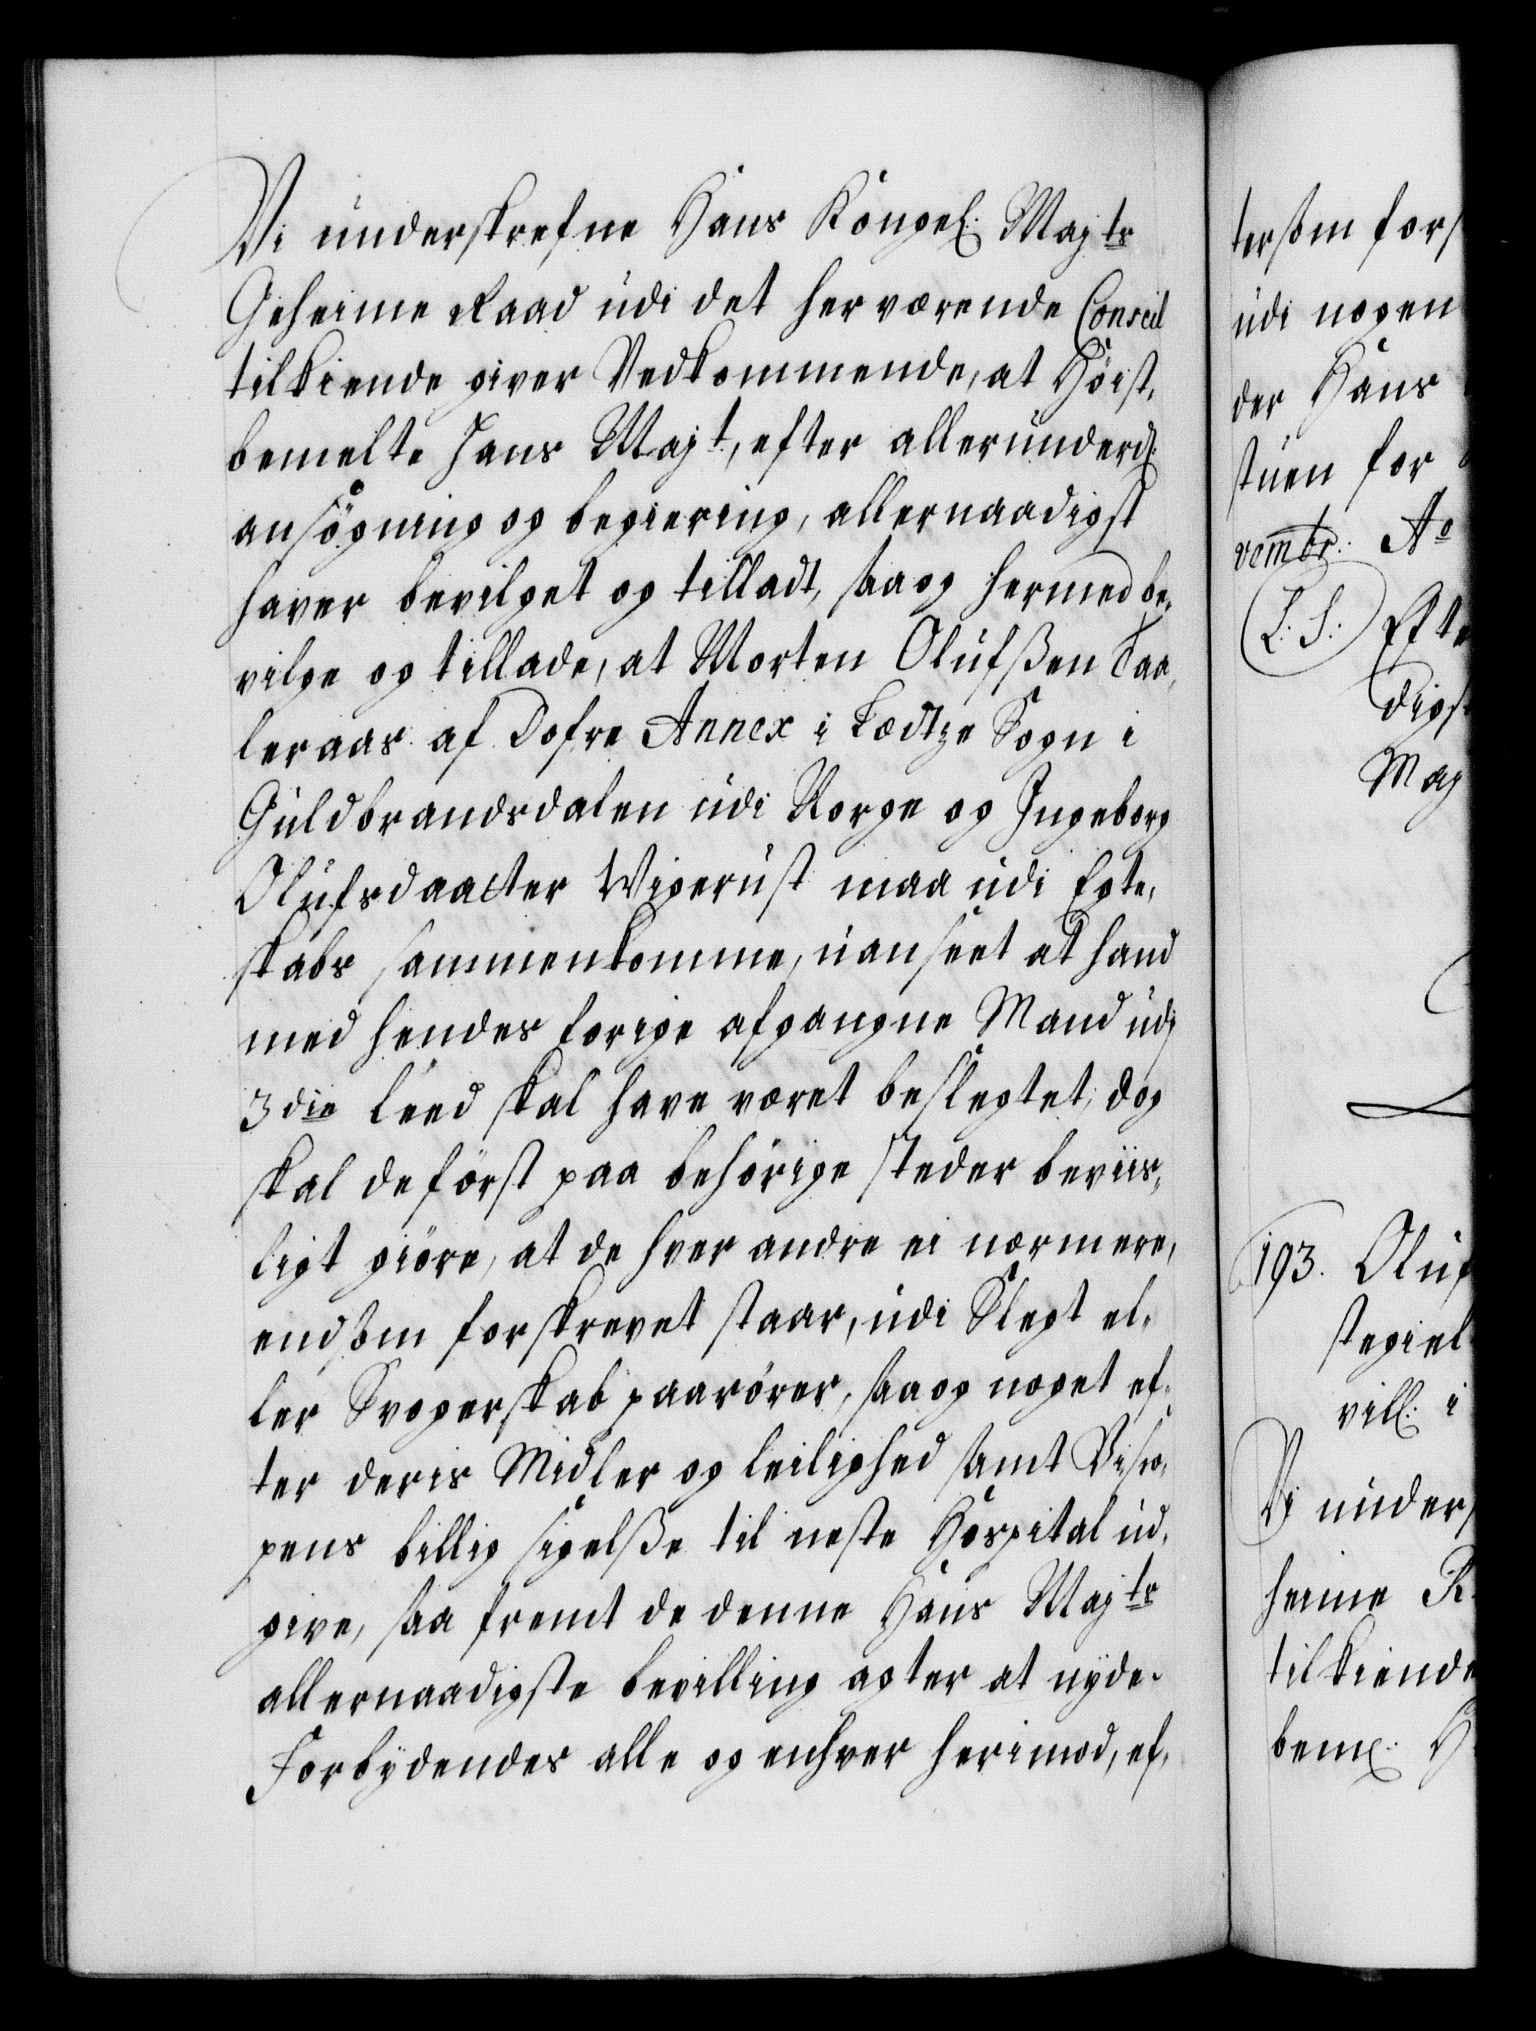 Vi underskrefne Hans Kongel: Majts
Geheime Raad udi det herværende Conseil
tilkiende giver Vedkommende, at Höist,
bemelte Hans Majt, efter allerunderd:
ansögning og begiering, allernaadigst
haver bevilget og tilladt, saa og hermed be,
vilge og tillade, at Morten Olufsßen Taa,
leraas af Dofre Annex i Lædtze Sogn i
Guldbrandsdalen udi Norge og Ingeborg
Olufsdaatter Wigerust maa udi Egte,
skabs sammenkomme, uanseet at hand
med hendes forige afgangne Mand udj
3die leed skal have været beslegtet; dog
skal de först paa behörige steder beviis,
ligt giöre, at de hver andre ei nærmere,
endsom forskrevet staar, udi Slegt el,
ler Svogerskab paarörer, saa og noget ef,
ter deris Midler og leilighed samt Bisco,
pens billig sigelße til neste Hospital ud,
give, saa fremt de denne Hans Majts
allernaadigste bevilling agter at nyde.
Forbydendes alle og enhver herimod, ef,
terßom fors
udi nogen
der Hans
stuen for
vembr: Ao
L: S: Efte
digst
Maj
193. Oluf
stegiel
vill: i
Vi unders
heime R
tilkiende
bem: H